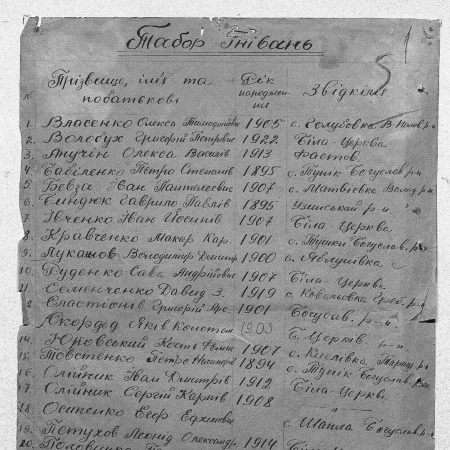 Табор Гнівань
1
5
№ Прізвище, ім'я та побатькові Рік народження Звідкіля
1. Власенко Олекса Тимофійович 1905 с. Голубовка В
2. Волобух Григорій Петрович 1922 Біла-Церква
3. Анучін Олекса Василів 1913 Фастов
4. Бабіленко Петро Степанів 1895 с. Тунік Богуслав р-н
5. Бевза Іван Панталеовіс 1907 с. Матвіовка Волод р-н
6. Биндюк Гаврило Павлів 1895 Узинський р-н.
7. Івченко Іван Йосипів 1907 Біла Церква
8. Кравченко Макар Кар. 1901 с. Туники Богуслав. р-н
9. Лукашов Володимир Дмитр 1900 с. Яблунівка
10. Руденко Сава Андрійовис 1907 Біла-Церква
11. Семенченко Давид З. 1919 с. Ковалівка Греб. р-н
Сластіонів Григорій 1901 Богуслав. р-н.
Яків Констан 1903 Б. Церків
14. Юровський Кость 1907 с. Кислівка Таращ р-н
15. Товстенко Петро 1894 с. Тунік Богуслав. р-н
16. Олійник Іван Дмитрів 1912 Біла-Церква
17. Олійник Сергій Карпів 1908 "
18. Осипенко Еф
19. Петухов Леонід Олександр. 1914 с. Шаіла Богуслав р-н
20.